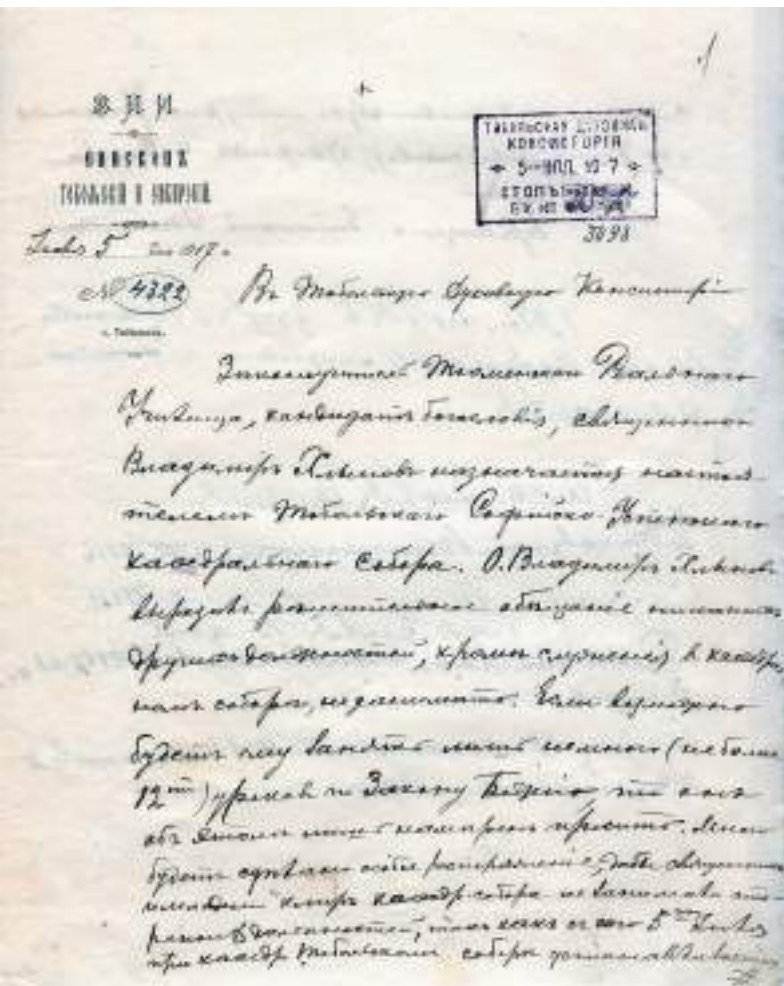 ЕПИСКОПЪ
ТОБОЛЬСКІЙ И СИБИРСКІЙ
ТОБОЛЬСКАЯ ДУХОВНАЯ
КОНСИСТОРІЯ
5
СТОЛЪ
3098
5 1917 г.
№ 4322
г. Тобольскъ.
Въ Тобольскую Духовную Консисторію
Законоучитель Тюменскаго Реальнаго
Училища, кандидатъ богословія, священникъ
Владиміръ Хлыновъ назначается настоя-
телемъ Тобольскаго Софійско-Успенскаго
кафедральнаго собора. О. Владиміръ Хлыновъ
выразилъ рѣшительное обѣщаніе никакихъ
другихъ должностей, кромѣ служенія в кафедраль-
номъ соборѣ, не занимать. Если возможно
будетъ ему занять лишь немного (не более
12ти) уроковъ по Закону Божію, то онъ
объ этомъ лишь намѣренъ просить. Мною
будетъ сдѣлано особое распоряженіе, дабы священники
кафедр. собора не занимали
должностей, такъ какъ съ сего 5го
при кафедр. Тобольскомъ соборѣ